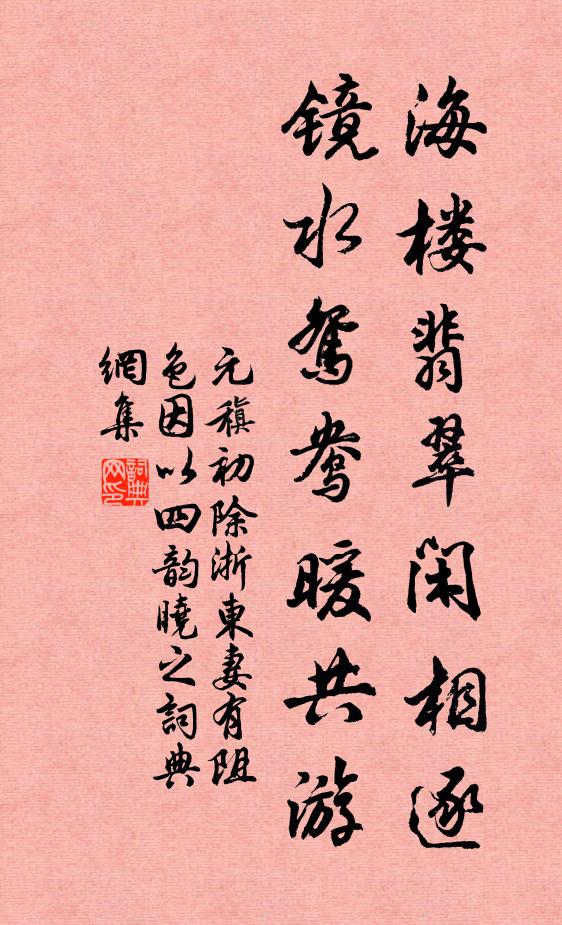 海楼翡翠闲相逐
镜水鸳鸯暖共游
元稹初除浙東妻有阻
色因以四韵曉之詞典
網集
詞典網印